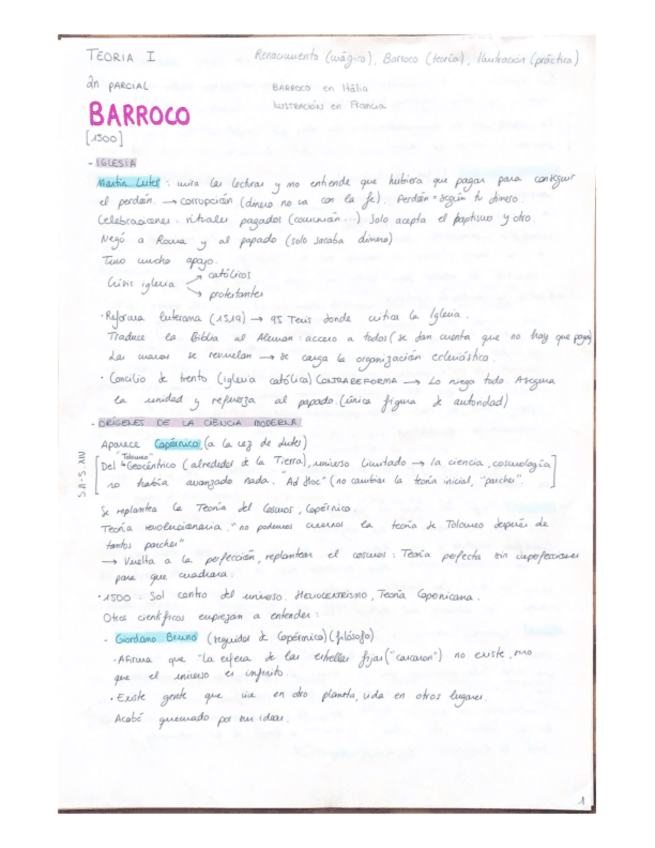 TEORIA I
Renacimiento (mágico), Barroco (teoría), Ilustración (práctica)
2n PARCIAL
BARROCO en Itália
ILUSTRACIÓN en Francia
BARROCO
[1500]
- IGLESIA
Martin Luter: mira las lecturas y no entiende que hubiera que pagar para conseguir
el perdón. → corrupción (dinero no va con la fe). Perdón = según tu dinero.
Celebraciones: rituales pagados (comunión...) Solo acepta el baptismo y otro.
Negó a Roma y al papado (solo sacaba dinero)
Tuvo mucho apoyo.
Crisis iglesia → católicos
→ protestantes
· Reforma luterana (1519) → 95 Tesis donde critica la Iglesia.
Traduce la Biblia al Aleman: acceso a todos (se dan cuenta que no hay que pagar)
Las masas se revuelan → se carga la organización eclesiástica.
· Concilio de trento (iglesia católica) CONTRAREFORMA → Lo niega todo. Asegura
la unidad y refuerza al papado. (única figura de autoridad)
- ORÍGENES DE LA CIENCIA MODERNA
Aparece Copérnico (a la vez de Luter)
S.II - S.XIV
"Tolomeo"
[Del Geocéntrico (alrededor de la Tierra), universo limitado → la ciencia, cosmología
no había avanzado nada. "Ad Hoc" (no cambiar la teoría inicial, "parches".]
Se replantea la Teoría del Cosmos, Copérnico.
Teoría revolucionaria. "no podemos creernos la teoría de Tolomeo después de
tantos parches"
→ Vuelta a la perfección, replantear el cosmos: Teoría perfecta sin imperfecciones
para que cuadrara.
· 1500: Sol centro del universo. HELIOCENTRISMO, Teoría Copernicana.
Otros científicos empiezan a entender:
- Giordano Bruno (seguidor de Copérnico) (filósofo)
· Afirma que "La esfera de las estrellas fijas ("cascaron") no existe, sino
que el universo es infinito.
· Existe gente que vive en otro planeta, vida en otros lugares.
Acabó quemado por sus ideas.
1